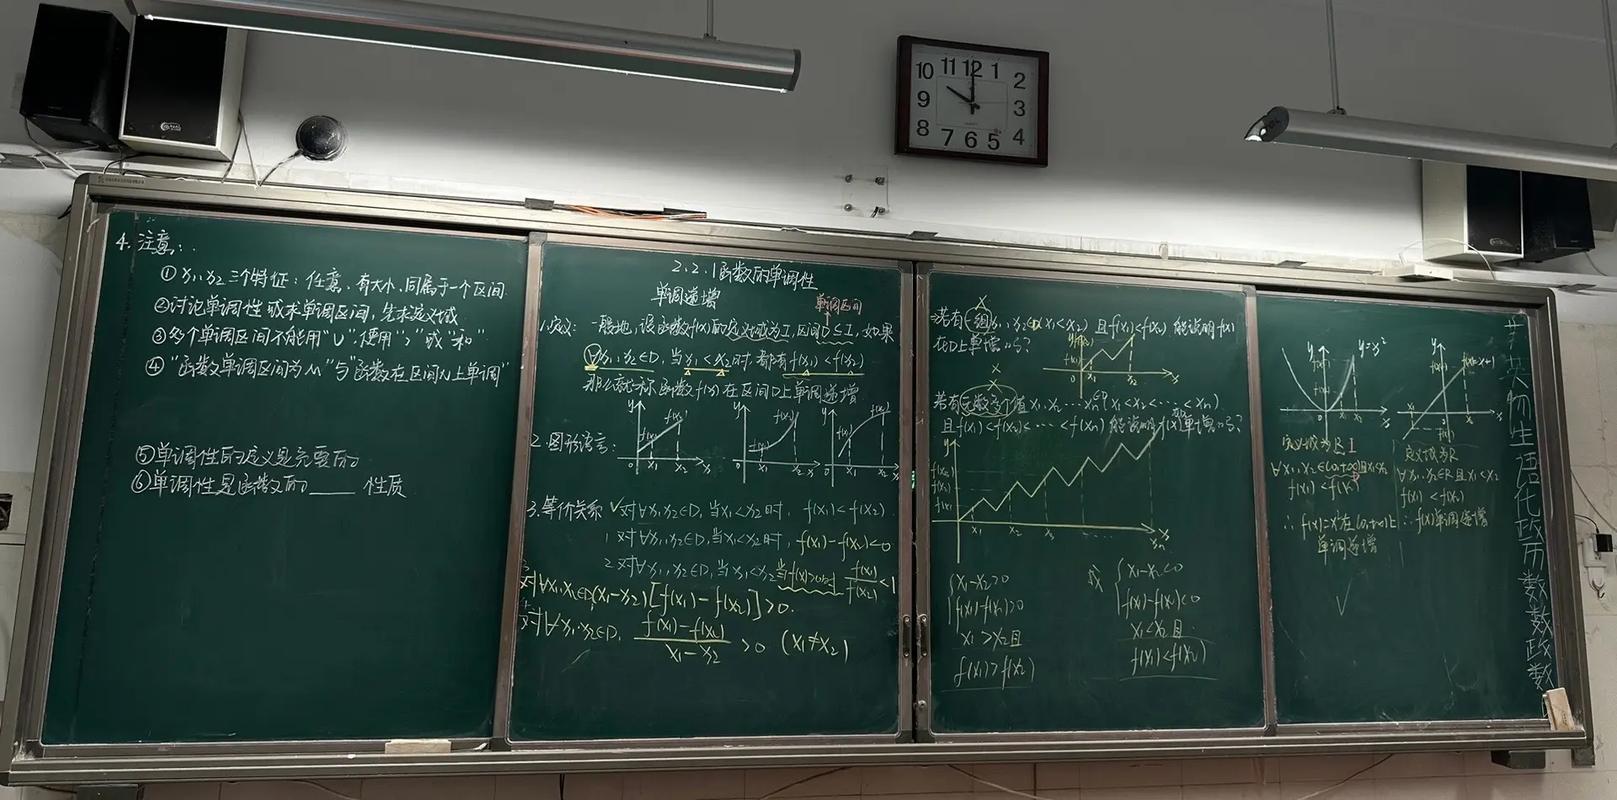 10 11 12 1 2
9 3
8 7 6 5 4
4. 注意:
① x₁, x₂ 三个特征: 任意、有大小、同属于一个区间
②讨论单调性或求单调区间, 先求定义域
③多个单调区间不能用"∪", 使用","或"和"
④ "函数单调区间为M"与"函数在区间N上单调"
⑤单调性的定义是充要的
⑥单调性是函数的____性质
2.2.1函数的单调性
单调递增
单调区间
1.定义: 一般地, 设函数f(x)的定义域为I, 区间D⊆I, 如果
∀x₁,x₂∈D, 当x₁<x₂时, 都有f(x₁)<f(x₂)
那么就称函数f(x)在区间D上单调递增
2.图形语言:
3.等价关系 √对∀x₁,x₂∈D, 当x₁<x₂时, f(x₁)<f(x₂)
1 对∀x₁,x₂∈D, 当x₁<x₂时, f(x₁)-f(x₂)<0
2 对∀x₁,x₂∈D, 当x₁<x₂ 当f(x)>0时 f(x₁)/f(x₂)<1
对∀x₁,x₂∈D (x₁-x₂)[f(x₁)-f(x₂)]>0.
对∀x₁,x₂∈D, f(x₁)-f(x₂)/x₁-x₂ >0 (x₁≠x₂)
若有一组x₁,x₂∈D(x₁<x₂) 且f(x₁)<f(x₂) 能说明f(x)
在D上单增吗?
若有无数多个值x₁,x₂…xₙ∈D(x₁<x₂<…<xₙ)
且f(x₁)<f(x₂)<…<f(xₙ) 能说明f(x)单增吗?
{x₁-x₂>0
f(x₁)-f(x₂)>0
x₁>x₂且
f(x₁)>f(x₂)
或 {x₁-x₂<0
f(x₁)-f(x₂)<0
x₁<x₂且
f(x₁)<f(x₂)
y=x²
定义域为R I
∀x₁,x₂∈(0,+∞)且x₁<x₂
f(x₁)<f(x₂)
∴ f(x)=x²在(0,+∞)上
单调递增
√
f(x)=x+1
定义域为R
∀x₁,x₂∈R且x₁<x₂
f(x₁)<f(x₂)
∴ f(x)单调递增
英物生语化政历数数政数